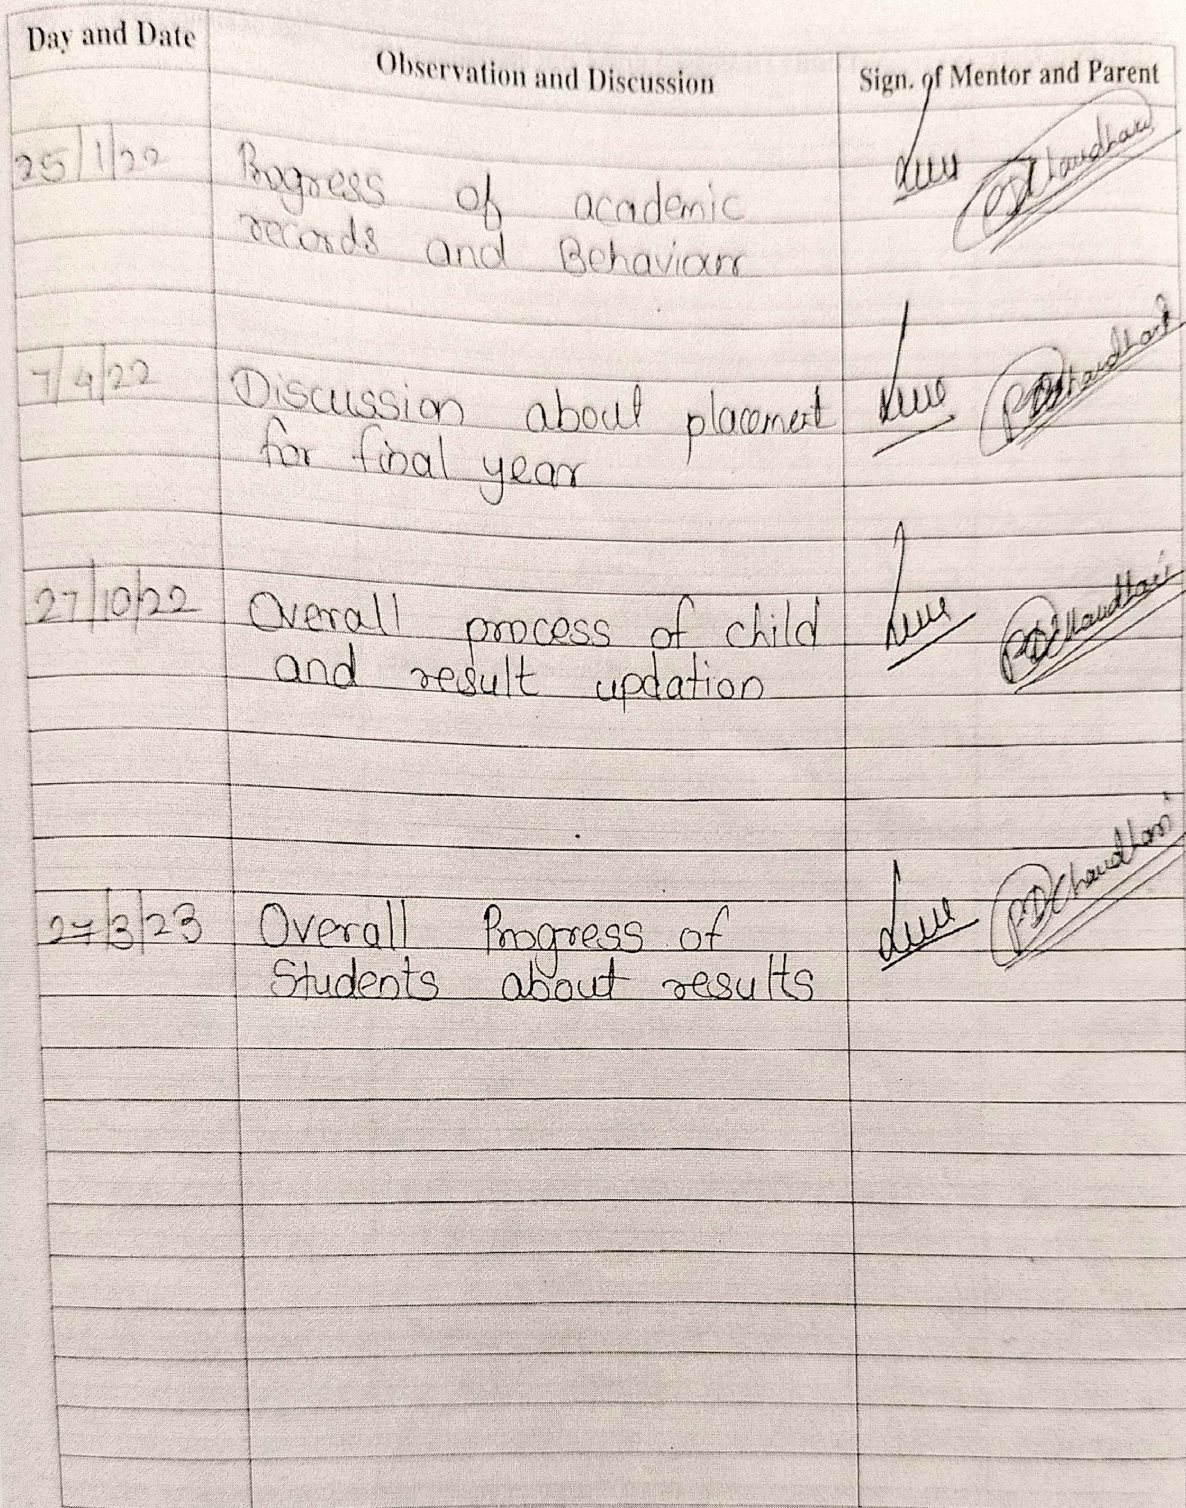 Day and Date
Observation and Discussion
Sign. of Mentor and Parent
25/1/22
Progress of academic
records and Behaviour
PDChaudhari
7/4/22
Discussion about placement
for final year
PDChaudhari
27/10/22
Overall process of child
and result updation
PDChaudhari
27/3/23
Overall Progress of
Students about results
PDChaudhari